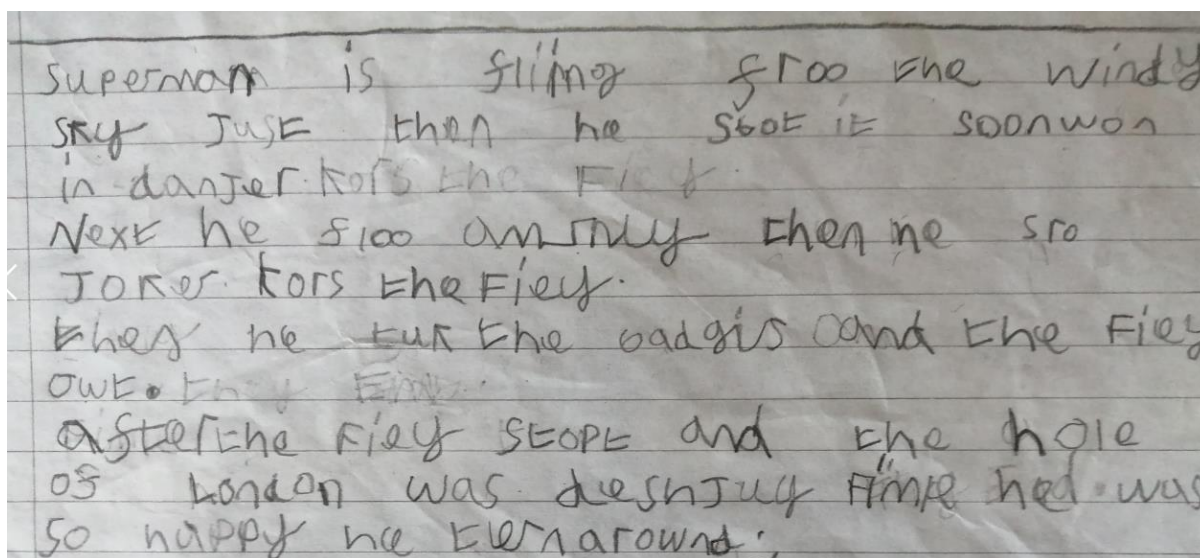 Superman is fliing froo the windy
sky Just then he spot it soonwon
in danJer. kors the Fiey.
Next he floo then he sro
JOKer. kors the Fiey.
then he tuk the badgis and the Fiey
owt.
after the Fiey stopt and the hole
of London was hed was
so happy he tern around.